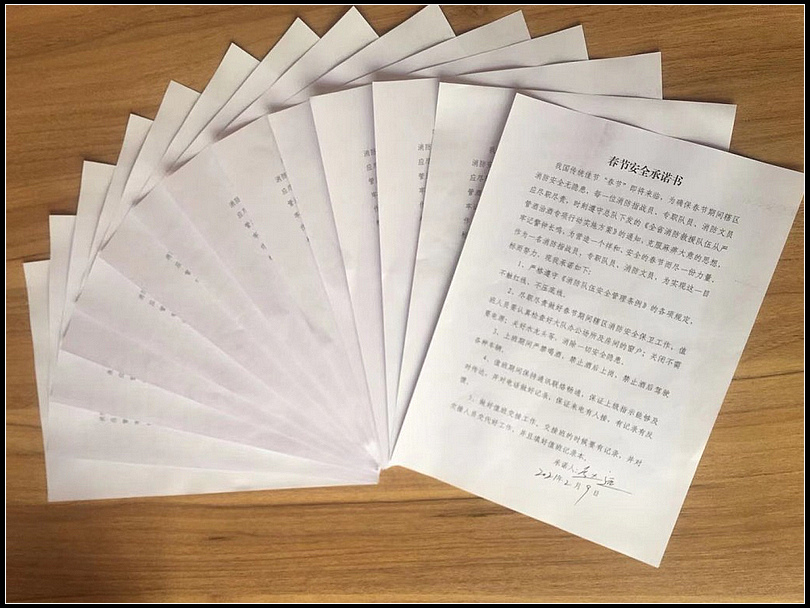 春节安全承诺书
我国传统佳节“春节”即将来临，为确保春节期间辖区
消防安全无隐患，每一位消防指战员、专职队员、消防文员
应尽职尽责，时刻遵守总队下发的《全省消防救援队伍从严
管酒治酒专项行动实施方案》的通知，克服麻痹大意的思想，
牢记警钟长鸣，为营造一个祥和、安全的春节而尽一份力量。
作为一名消防指战员、专职队员、消防文员，为实现这一目
标而努力，现我承诺如下：
1、严格遵守《消防队伍安全管理条例》的各项规定，
不触红线、不压底线。
2、尽职尽责做好春节期间辖区消防安全保卫工作，值
班人员要认真检查好大队办公场所及房间的窗户；关闭不需
要电源；关好水龙头等，消除一切安全隐患。
3、上班期间严禁喝酒，禁止酒后上岗，禁止酒后驾驶
各种车辆。
4、值班期间保持通讯联络畅通，保证上级指示能够及
时传达，并对电话做好记录，保证来电有人接，有记录有反
馈。
5、做好值班交接工作，交接班的时候要有记录，并对
交接人员交代好工作，并且填好值班记录本。
承诺人：
2021年2月9日
消防
应尽
管酒
牢
作